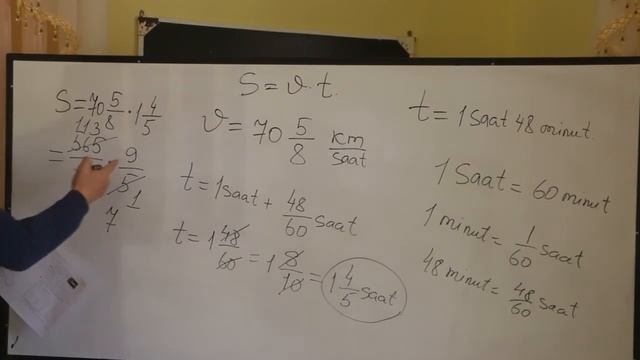 S = ϑ · t.
S = 70 5/8 · 1 4/5
113
= 565 · 9/5
1
7
ϑ = 70 5/8 km/saat
t = 1 saat + 48/60 saat
t = 1 48/60 = 1 8/10 = 1 4/5 saat
t = 1 saat 48 minut.
1 Saat = 60 minut
1 minut = 1/60 saat
48 minut = 48/60 saat